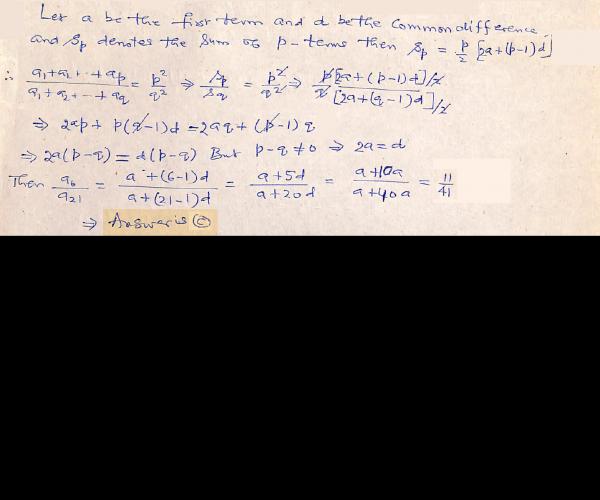 Let a be the first term and d be the Common difference.
and Sp denotes the Sum of p-terms then Sp = p/2 [2a+(p-1)d]
∴ (a1+a2+··+ap)/(a1+a2+··+aq) = p²/q² ⇒ Sp/Sq = p²/q² ⇒ p[2a+(p-1)d]/2 / q[2a+(q-1)d]/2
⇒ 2ap + p(q-1)d = 2aq + (p-1)q
⇒ 2a(p-q) = d(p-q) But p-q ≠ 0 ⇒ 2a = d
Then a6/a21 = (a+(6-1)d)/(a+(21-1)d) = (a+5d)/(a+20d) = (a+10a)/(a+40a) = 11/41
⇒ Answer is (c)